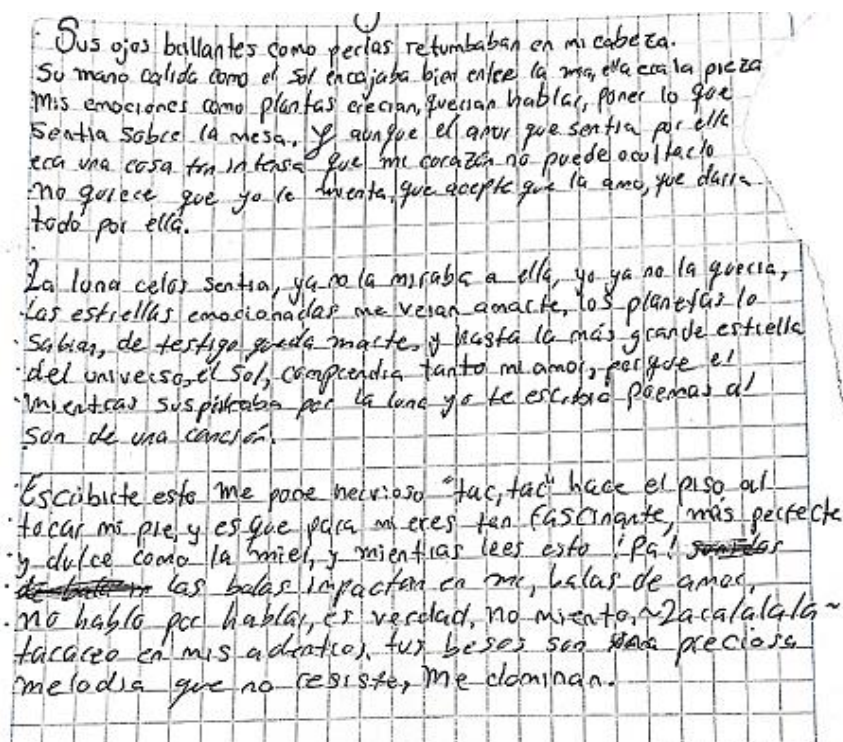 Sus ojos brillantes como perlas retumbaban en mi cabeza.
Su mano calida como el sol encajaba bien entre la mia, ella era la pieza
Mis emociones como plantas crecian, querian hablar, poner lo que
Sentia sobre la mesa. Y aunque el amor que sentia por ella
era una cosa tan intensa que mi corazón no puede ocultarlo
no quiere que yo le mienta, que acepte que la amo, que daria
todo por ella.
La luna celos sentia, ya no la miraba a ella, yo ya no la queria,
Las estrellas emocionadas me veian amarte, los planetas lo
Sabian, de testigo queda marte, y hasta la más grande estrella
del universo, el sol, comprendia tanto mi amor, porque el
mientras suspiraba por la luna yo te escribia poemas al
Son de una canción.
Escribirte esto me pone nervioso "tac, tac" hace el piso al
tocar mi pie, y es que para mi eres tan fascinante, más perfecta
y dulce como la miel, y mientras lees esto ¡Pa!
las balas impactan en mi, balas de amor,
no hablo por hablar, es verdad, no miento, ~Laralalala~
tarareo en mis adentros, tus besos son preciosa
melodia que no resiste, me dominan.